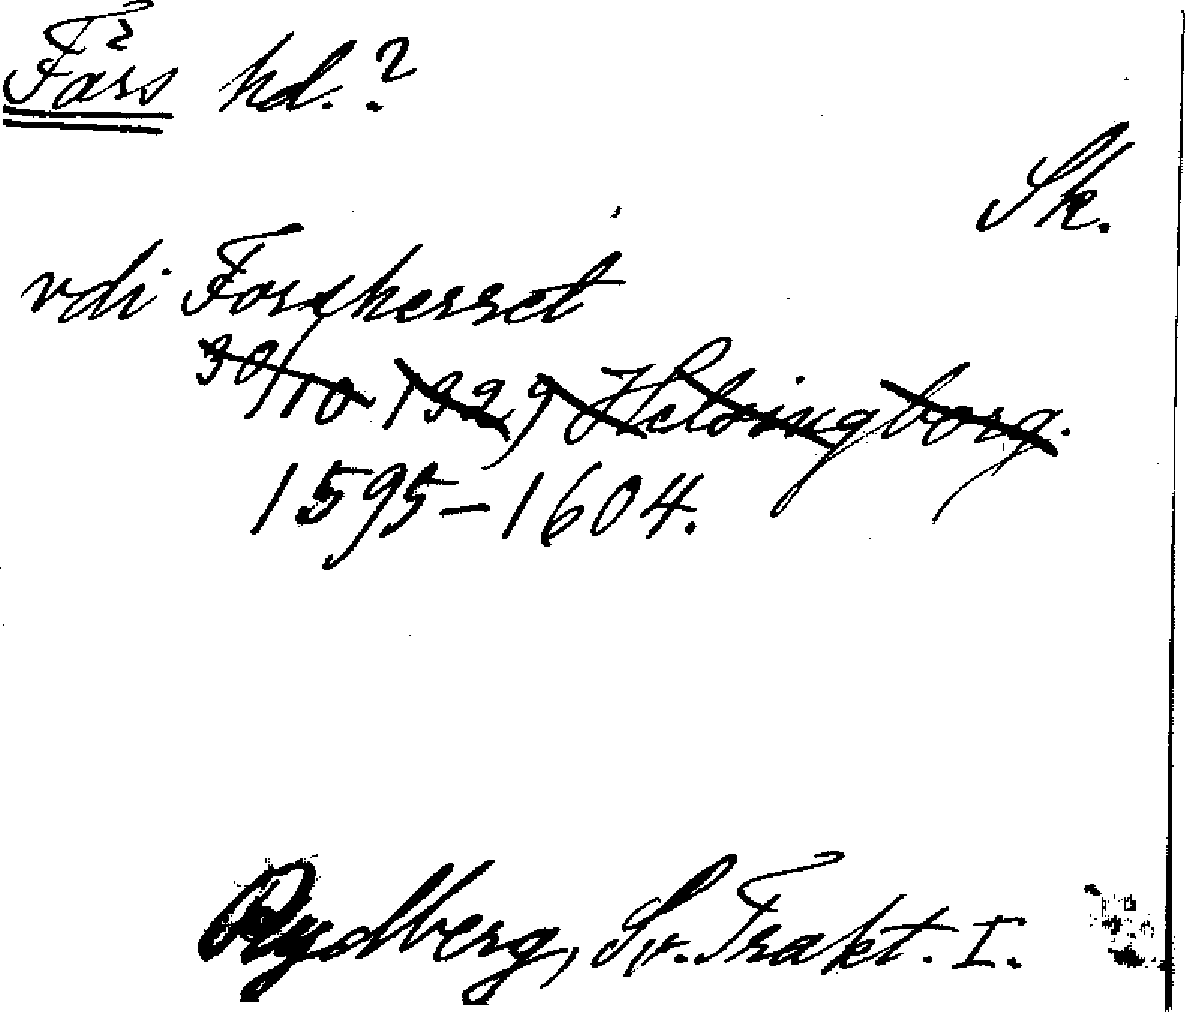 Färs hd.?
Sk.
vdi Forsherret
30/10 1329 Helsingborg.
1595-1604.
Rydberg, Sv. Trakt. I.